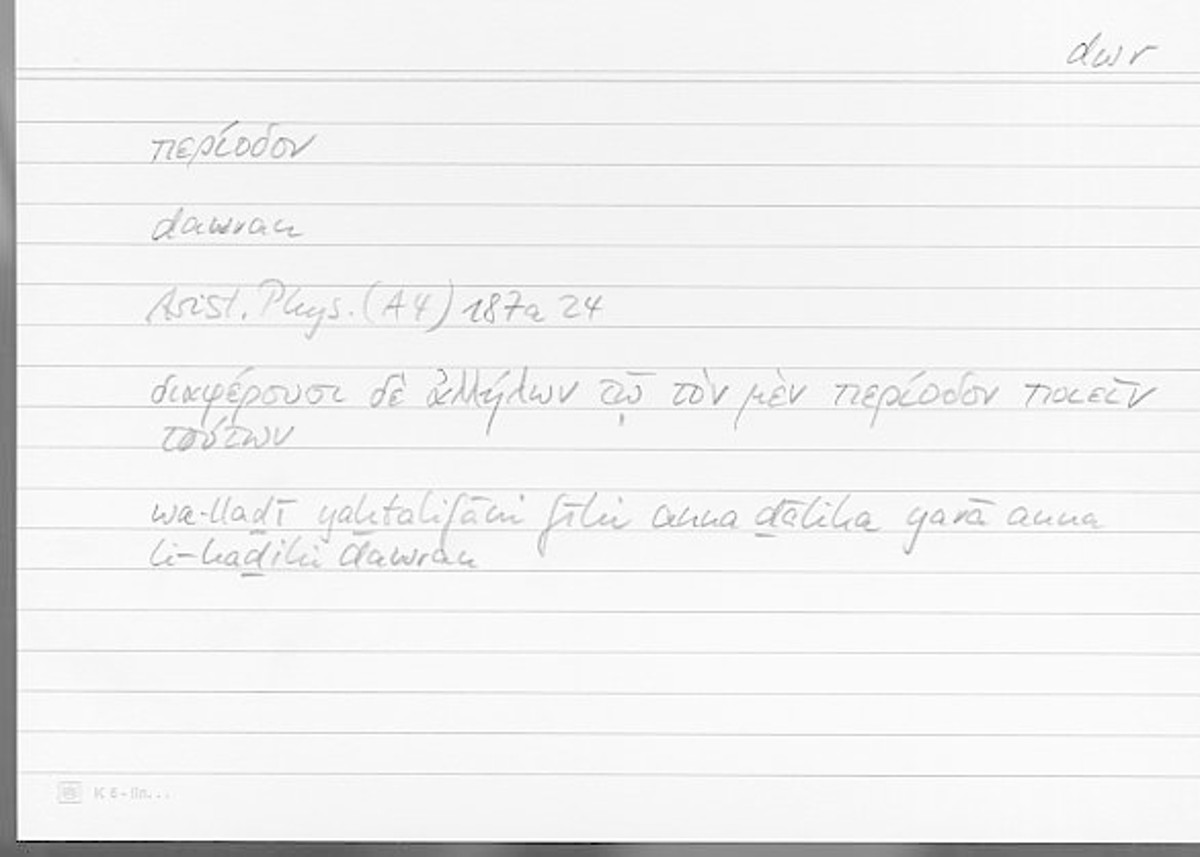 dwr
περίοδον
dawran
Arist. Phys. (A 4) 187a 24
διαφέρουσι δὲ ἀλλήλων τῷ τὸν μὲν περίοδον ποιεῖν
τούτων
wa-llaḏī yaḫtalifāni fīhi anna ḏālika yarā anna
li-haḏihi dawran